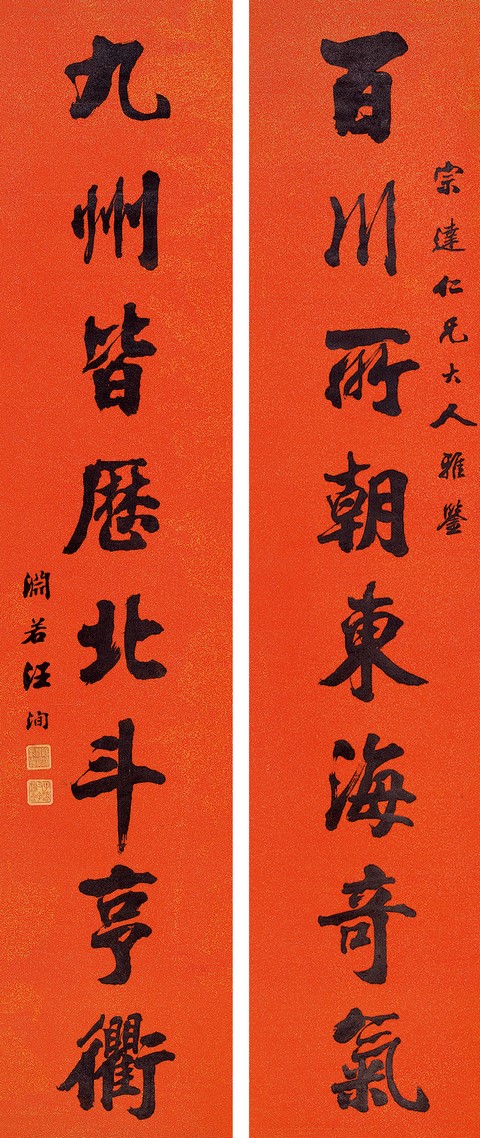 百川所朝東海奇氣
宗達仁兄大人雅鑒
九州皆歷北斗亨衢
淵若汪洵